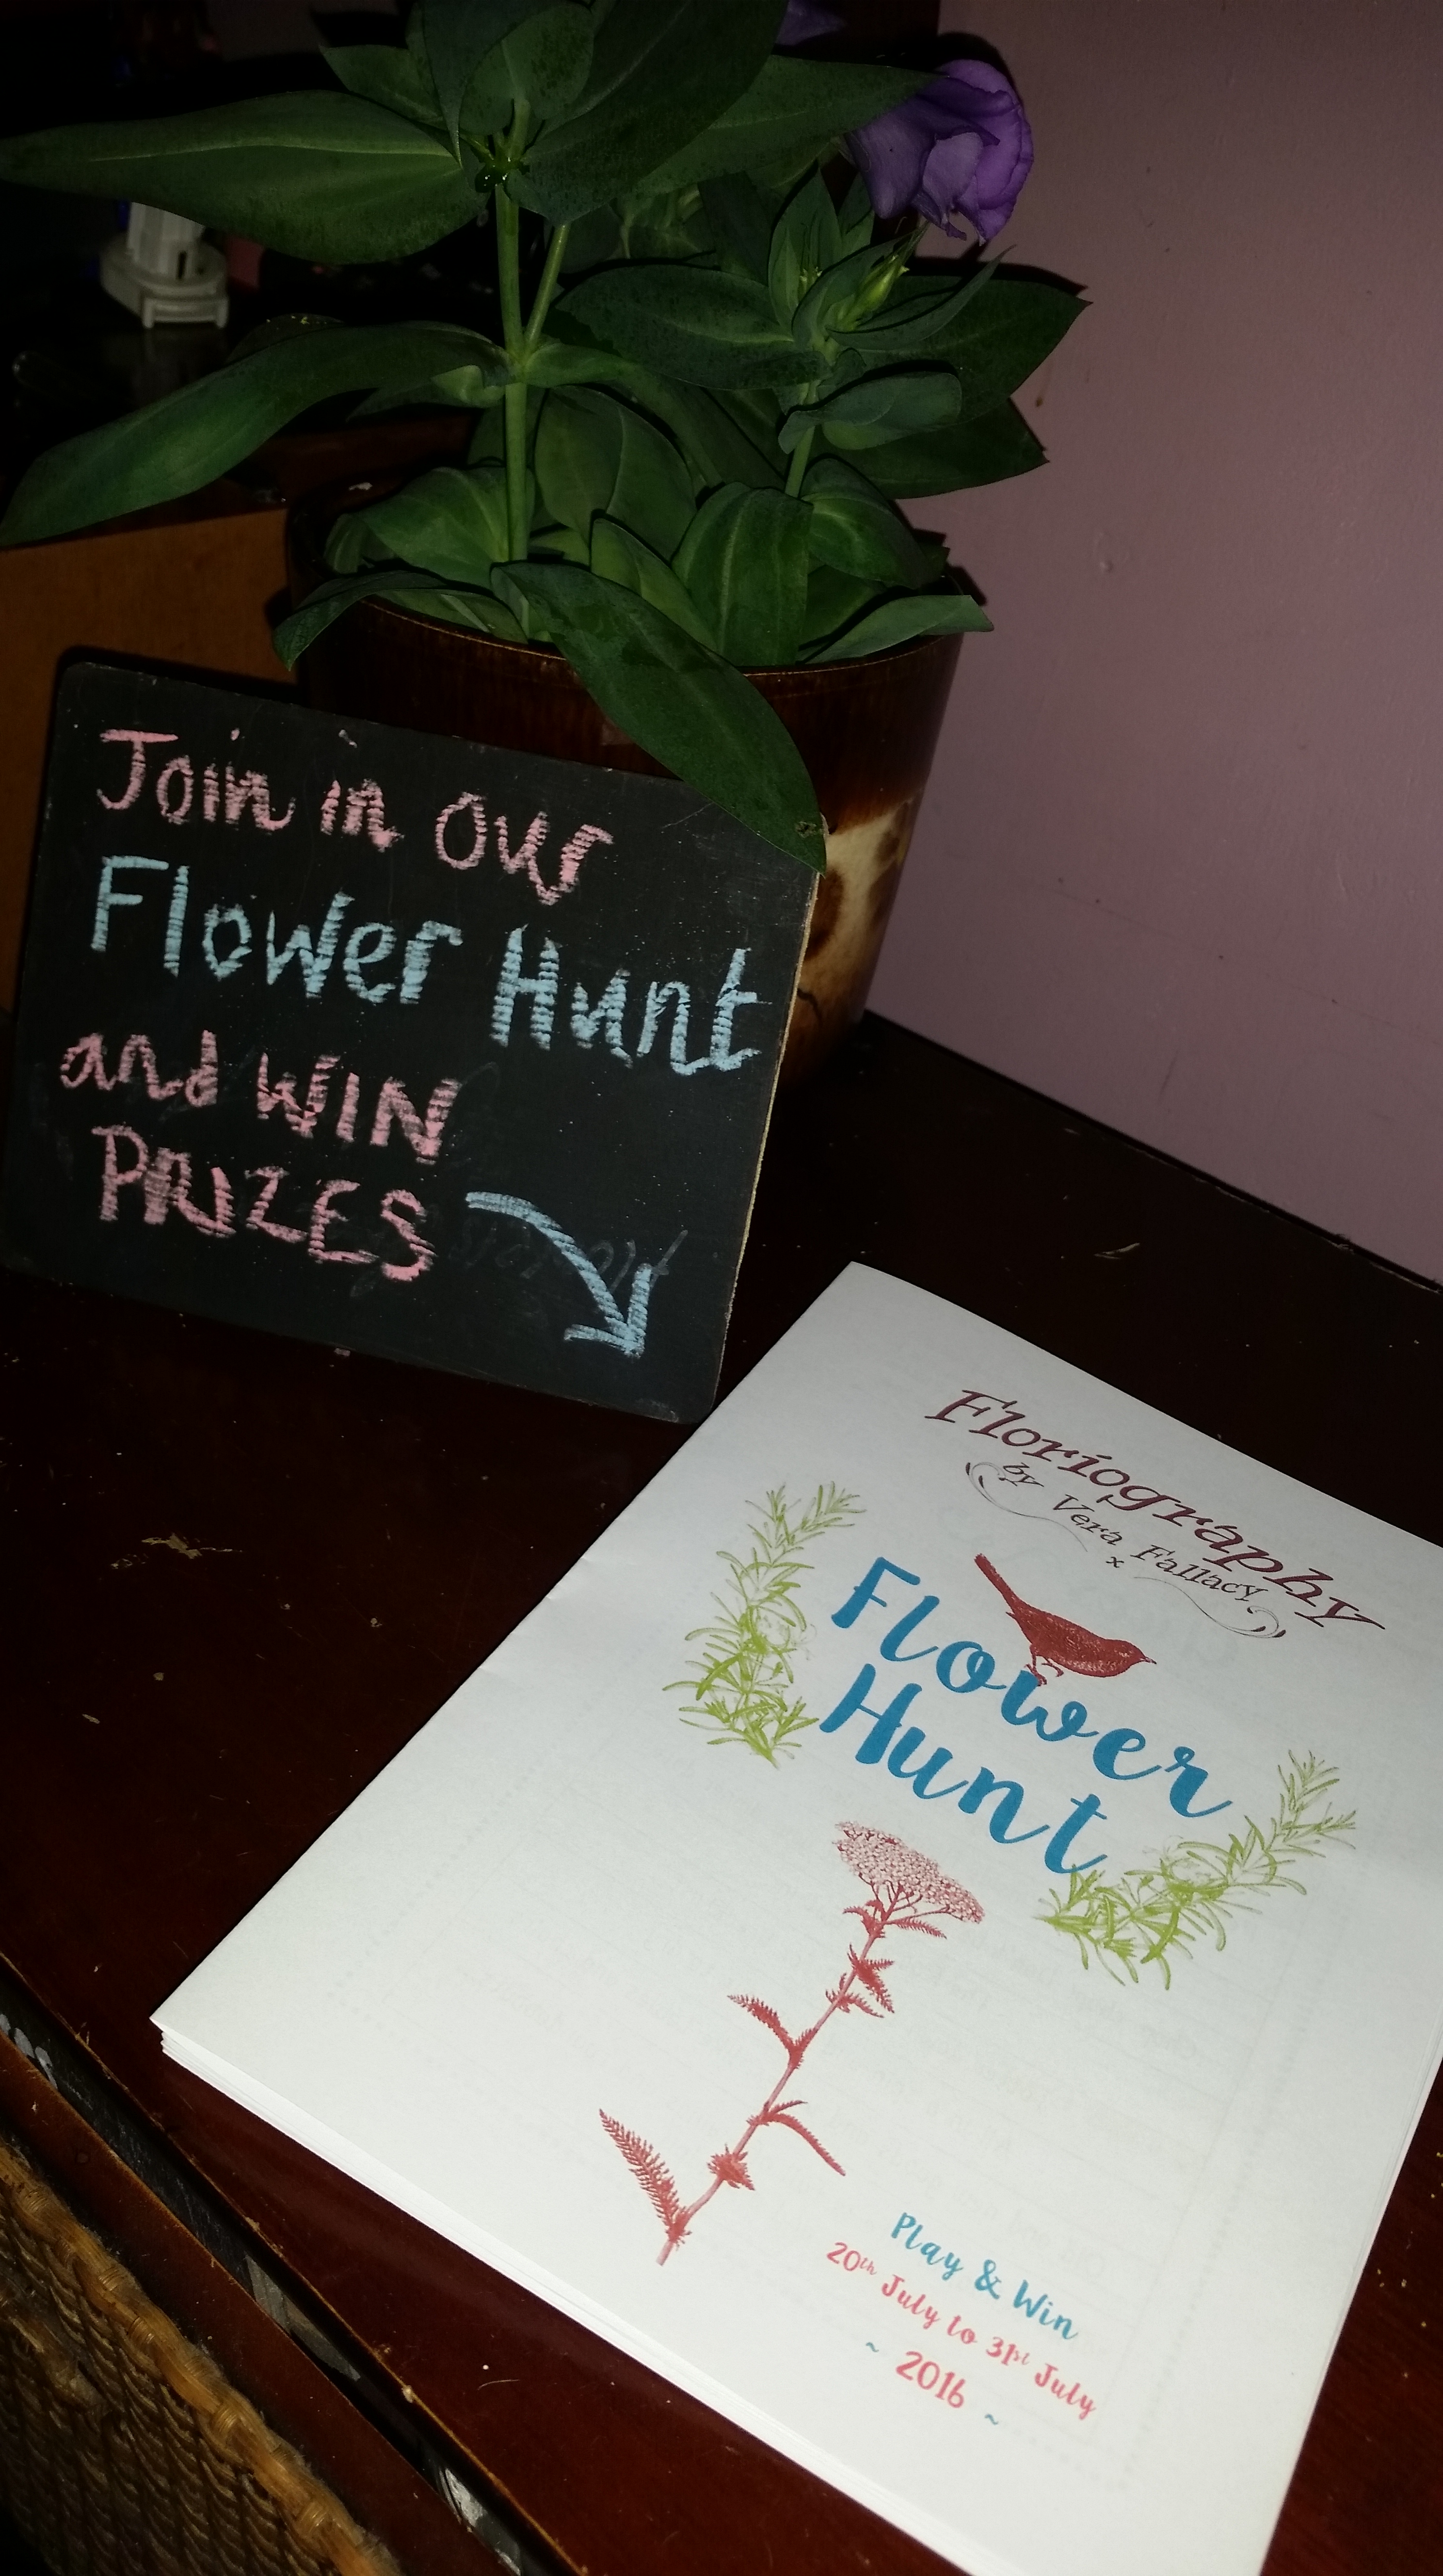 Join in our
Flower Hunt
and WIN
PRIZES
Floriography
by Vera Fallacy
x
Flower
Hunt
Play & Win
20th July to 31st July
~ 2016 ~